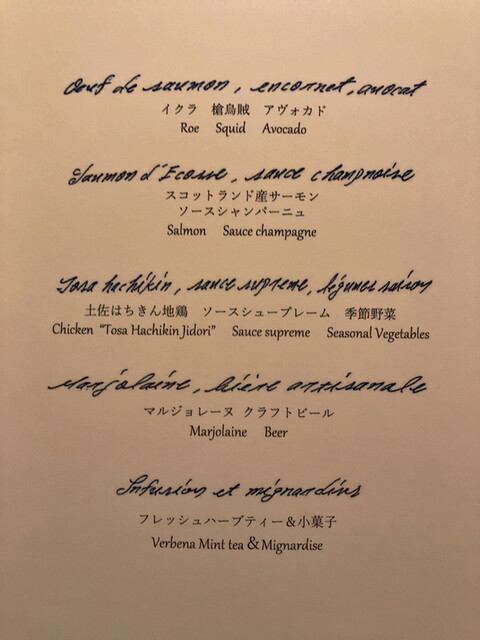 Oeuf de saumon, encornet, avocat
イクラ 槍烏賊 アヴォカド
Roe Squid Avocado
Saumon d'Ecosse, sauce champnoise
スコットランド産サーモン
ソースシャンパーニュ
Salmon Sauce champagne
Tosa hachikin, sauce supreme, légumes saison
土佐はちきん地鶏 ソースシュープレーム 季節野菜
Chicken “Tosa Hachikin Jidori” Sauce supreme Seasonal Vegetables
Marjolaine, bière artisanale
マルジョレーヌ クラフトビール
Marjolaine Beer
Infusion et mignardises
フレッシュハーブティー＆小菓子
Verbena Mint tea & Mignardise